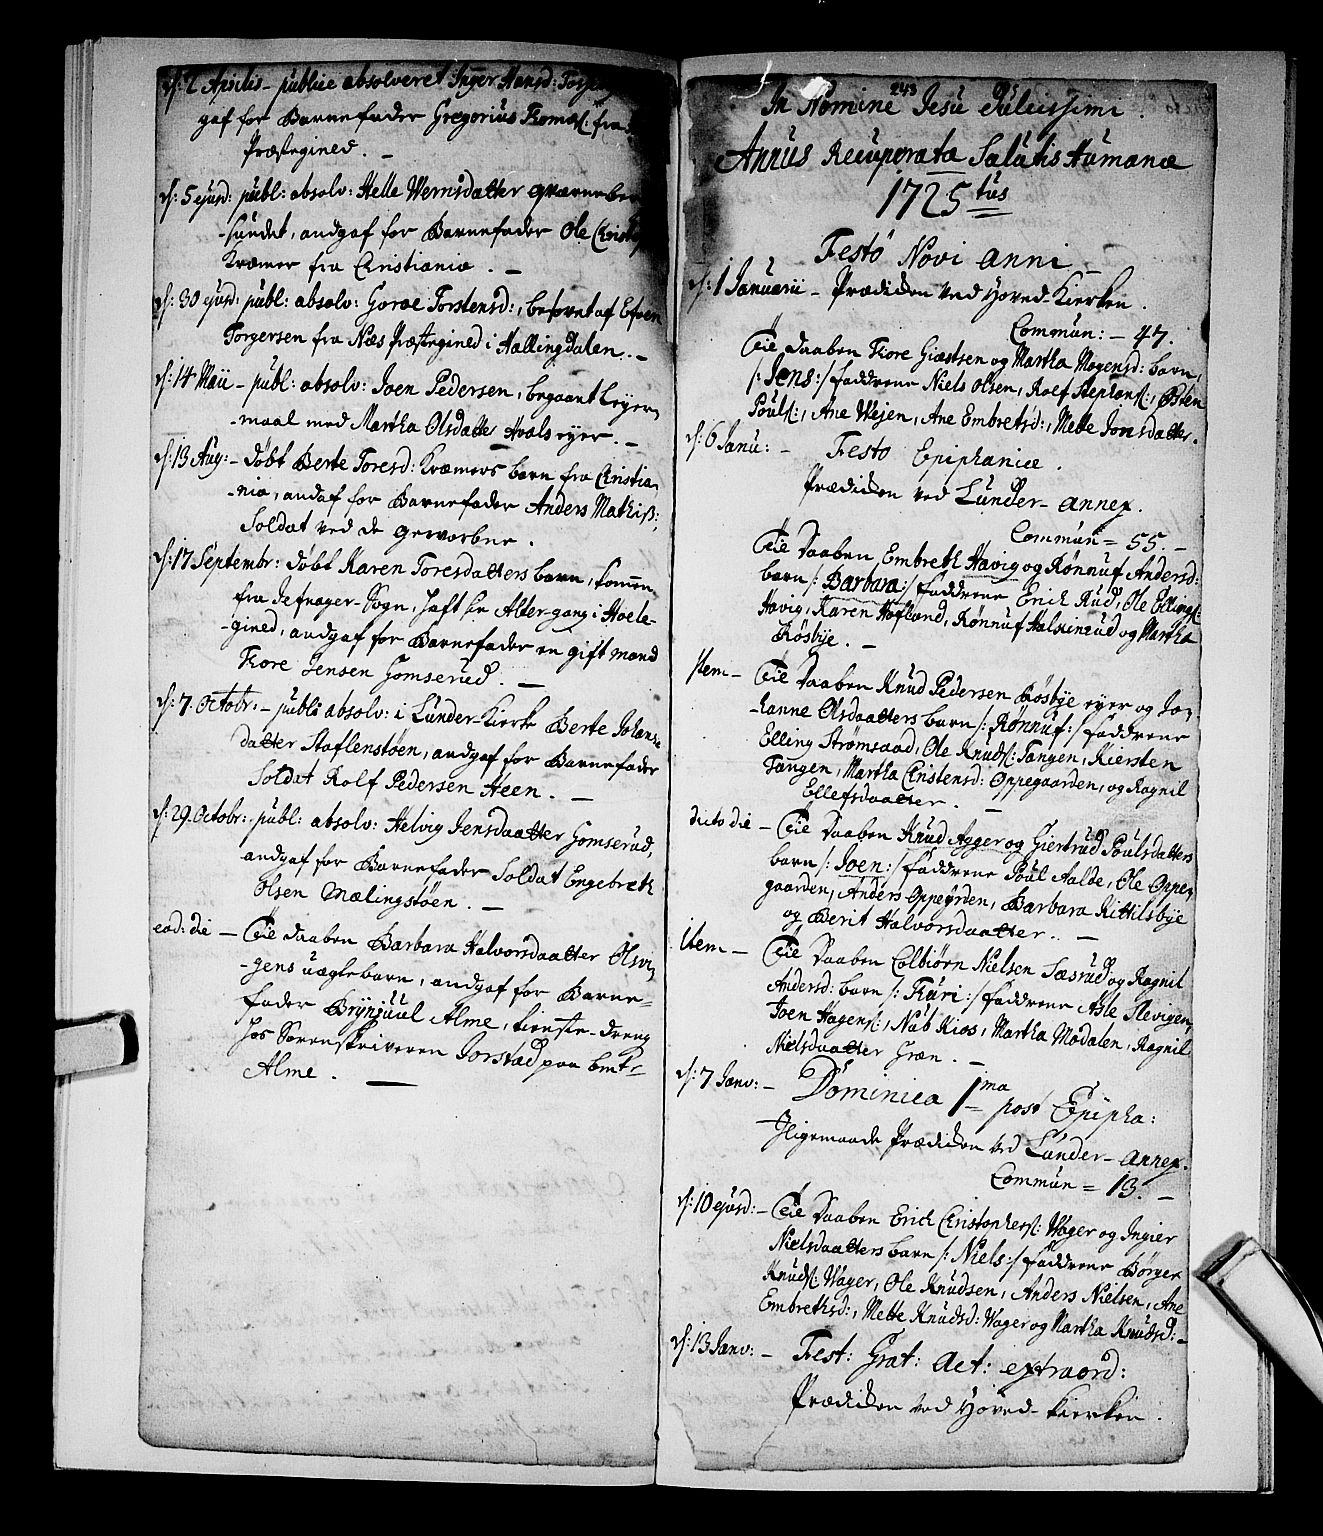 d: 2 Aprilis - publice absolveret Inger Hansd:
gaf for Barnefader Gregorius Tomæs: fra
Præstegield. -
d: 5 ejusd: publ: absolv: Helle Wernsdatter
-sundet, andgaf for Barnefader Ole
Kræmer fra Christiania. -
d: 30 ejusd: publ: absolv: Goroe Torstensd:, besovet af
Torgersen fra Næs Præstegield i Hallingdalen. -
d: 14 Maii - publ: absolv: Joen Pedersen, begaaet Leyer-
-maal med Martha Olsdatter Hvals eyer. -
d: 13 Aug: - døbt Berte Toresd: Kræmers barn fra Christia-
-nia, andgaf for Barnefader Anders Mathiß:
Soldat ved de geworbne.
d: 17 Septembr: døbt Karen Toresdatters barn, kommen
fra Jefnager-Sogn, haft sin Alter-gang i Hole-
-gield, andgaf for Barnefader en gift mand
Tore Jensen Gomserud. -
d: 7. Octobr: - publ: absolv: i Lunder-Kirke Berte Johans-
datter Staflenstøen, andgaf for Barnefader
Soldat Rolf Pedersen Heen. -
d: 29. Octobr: publ: absolv: Helvig Jensdaatter Gomserud,
andgaf for Barnefader Soldat Engebreth
Olsen Mælingstøen. -
eod: die - Til Daaben Barbara Halvorsdaatter
-gens uægte barn, andgaf for Barne-
fader Brynjuul Alme, tieneste-dreng
hos Sorenskriveren Jorstad paa
Alme. -
243
In Nomine Jesu Dulcissimi.
Annus Recuperatæ Salutis Humanæ
1725tus
Festo Novi Anni
d: 1 Januarii - Prædiken ved Hoved-Kierken.
Commun: - 47.
Til Daaben Tore Giæstsen og Martha Mogensd: barn,
/: Jens :/ faddrene Niels Olsen, Rolf Stephans:, Østen
Pouls:, Ane Wejen, Ane Embretsd:, Mette Jonsdatter.
d: 6 Janu: - Festo Epiphaniæ.
Prædiken ved Lunder-annex.
Commun = 55. -
Til Daaben Embreth Havig og Rønnuf Andersd:
barn /: Barbara :/ faddrene Erich Rud, Ole Ellings:
Havig, Karen Hofland, Rønnuf Halkinrud og Martha
Røsbye. -
Item - Til Daaben Knud Pedersen Røsbye eyer og Jo-
-hanne Olsdaatters barn /: Rønnuf :/ faddrene
Elling Strømsaad, Ole Knuds: Tangen, Kiersten
Tangen, Martha Christensd: Oppegaarden, og Ragnil
Ellefsdaatter. -
dicto die - Til Daaben Knud Agger og Giertrud Poulsdatters
barn /: Joen :/ faddrene Poul Aalde, Ole Oppe-
gaarden, Anders Oppeyrden, Barbara Kittilsbye
og Berit Halvorsdaatter. -
item - Til Daaben Colbiørn Nielsen Sæsrud og Ragnil
Andersd: barn /: Turi :/ faddrene Asle Flevigen,
Joen Hagens:, Nub Kios, Martha Modalen, Ragnil
Nielsdaatter Græn. -
d: 7 Janv: - Dominica 1ma post Epipha:
Ligemaade Prædiken ved Lunder-annex.
Commun = 13. -
d: 10 ejusd: - Til Daaben Erich Christophers: Wager og Ingier
Nielsdaatters barn /: Niels :/ faddrene Børger
Knuds: Wager, Ole Knudsen, Anders Nielsen, Ane
Embrethsd:, Mette Knudsd: Wager og Martha Knudsd: -
d: 13 Janv: - Fest: Grat: Act: extraord:
Prædiken ved Hoved-Kierken.